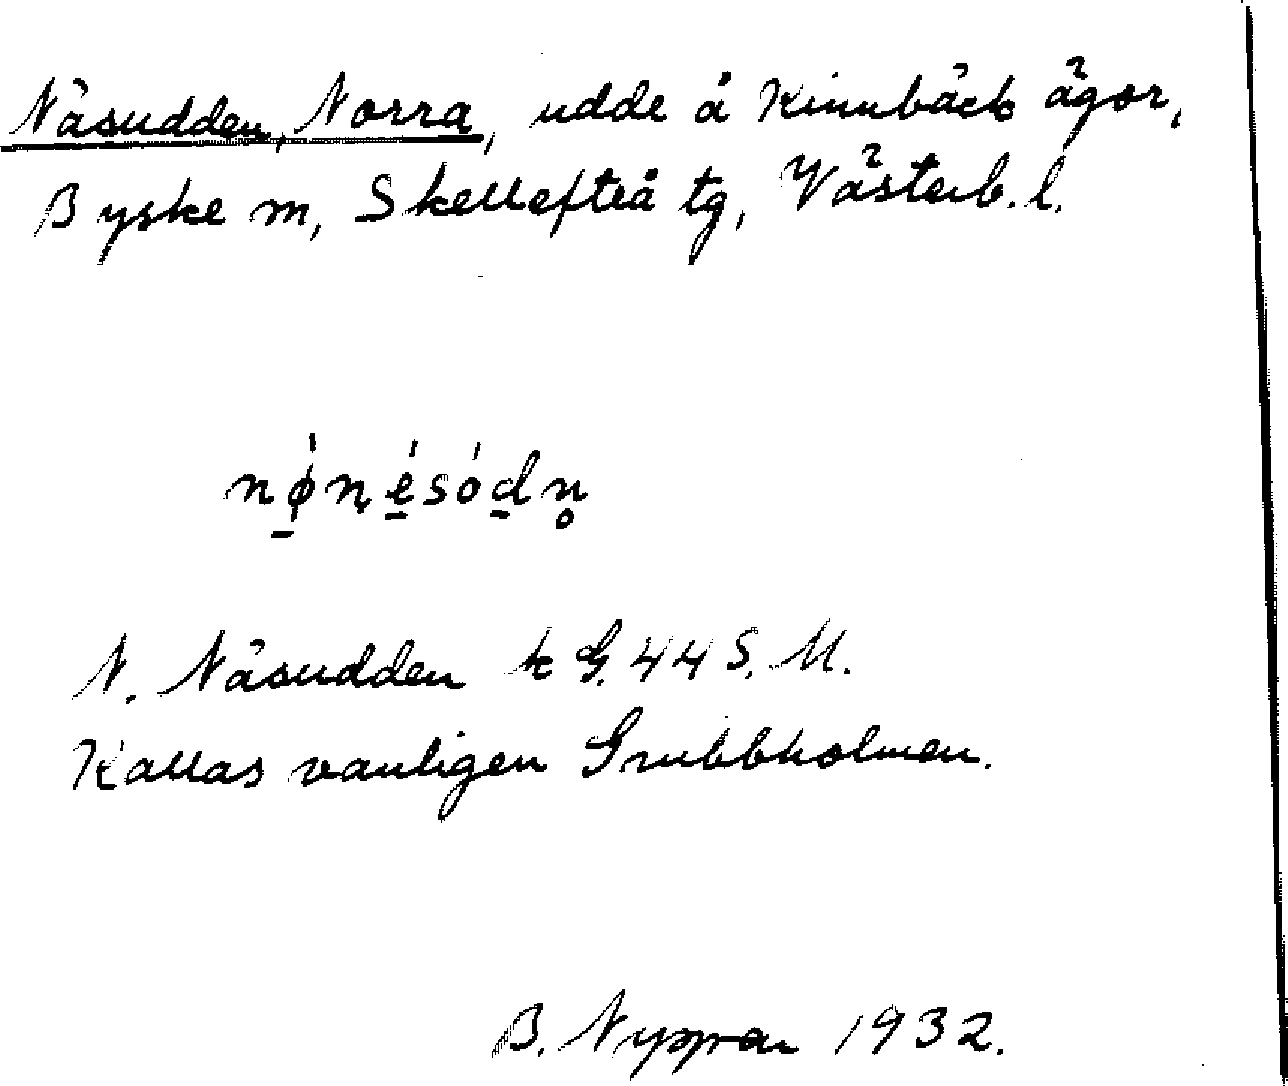 Näsudden, Norra, udde å Kinnbäck ägor,
Byske m, Skellefteå tg, Västerb. l.
nǿṇésódn̥
N. Näsudden k G. 44 S. M.
Kallas vanligen Grubbholmen.
B. Nyppan 1932.